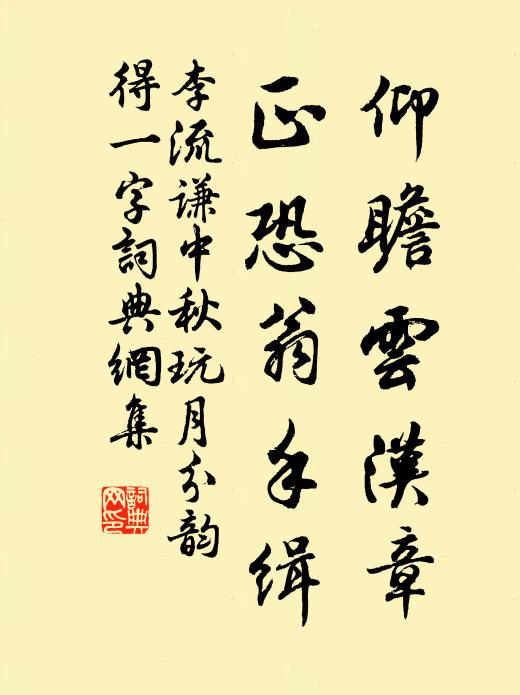 仰瞻雲漢章
正恐翁手緝
李流谦中秋玩月分韵
得一字詞典網集
詞典
网印